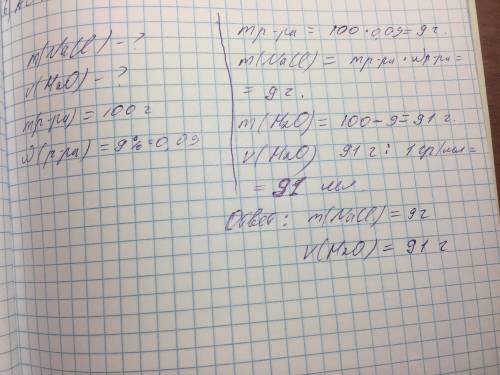 m(NaCl) - ?
V(H2O) - ?
mр-ра) = 100 г
ω(р-ра) = 9% = 0,09
mр-ра = 100 · 0,09 = 9 г.
m(NaCl) = mр-ра · ωр-ра =
= 9 г.
m(H2O) = 100 - 9 = 91 г.
V(H2O) 91 г : 1 гр/мл =
= 91 мл
Ответ: m(NaCl) = 9г
V(H2O) = 91 г